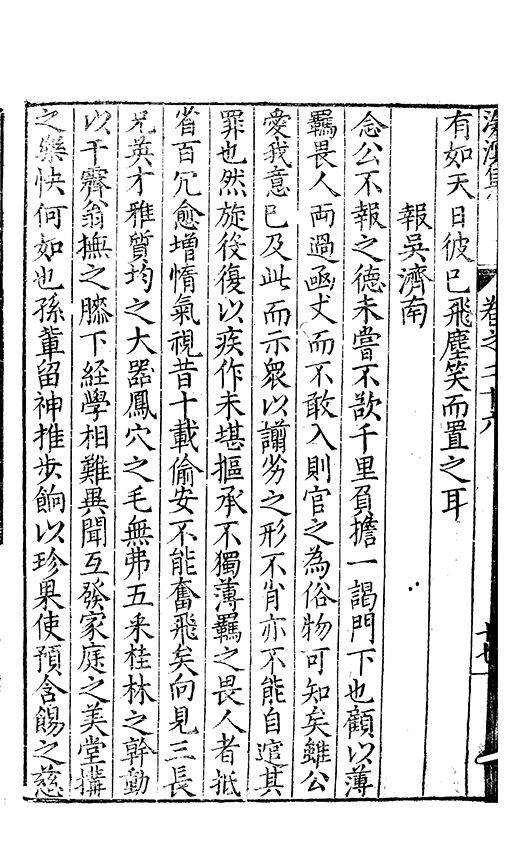 有如天日彼已飛塵笑而置之耳
報吳濟南
念公不報之德未嘗不欲千里負擔一謁門下也顧以薄
羈畏人兩過函丈而不敢入則官之為俗物可知矣雖公
愛我意已及此而示衆以謭劣之形不肖亦不能自逭其
罪也然旋役復以疾作未堪摳承不獨薄羈之畏人者抵
省百冗愈增惰氣視昔十載偷安不能奮飛矣向見三長
兄英才雅質均之大器鳳穴之毛無弗五釆桂林之幹動
以干霽翁撫之膝下経學相難異聞互發家庭之美堂搆
之樂快何如也孫輩留神推步餉以珍果使預含餳之慈
卷之二十六
十七